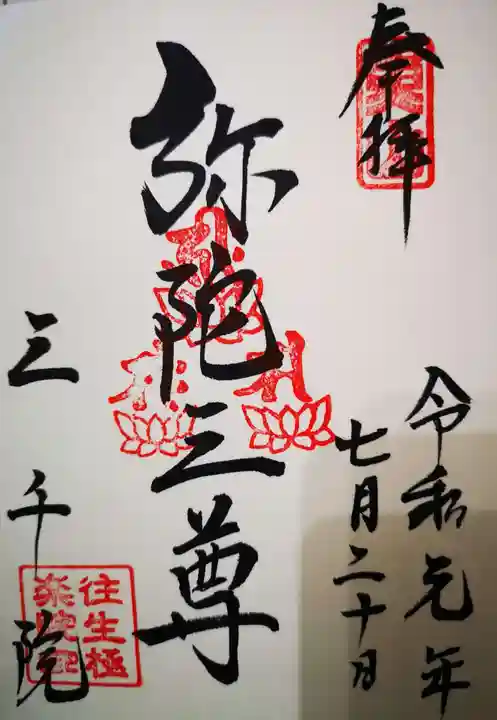 奉拝
令和元年
七月二十日
弥陀三尊
三千院
往生極
楽院印